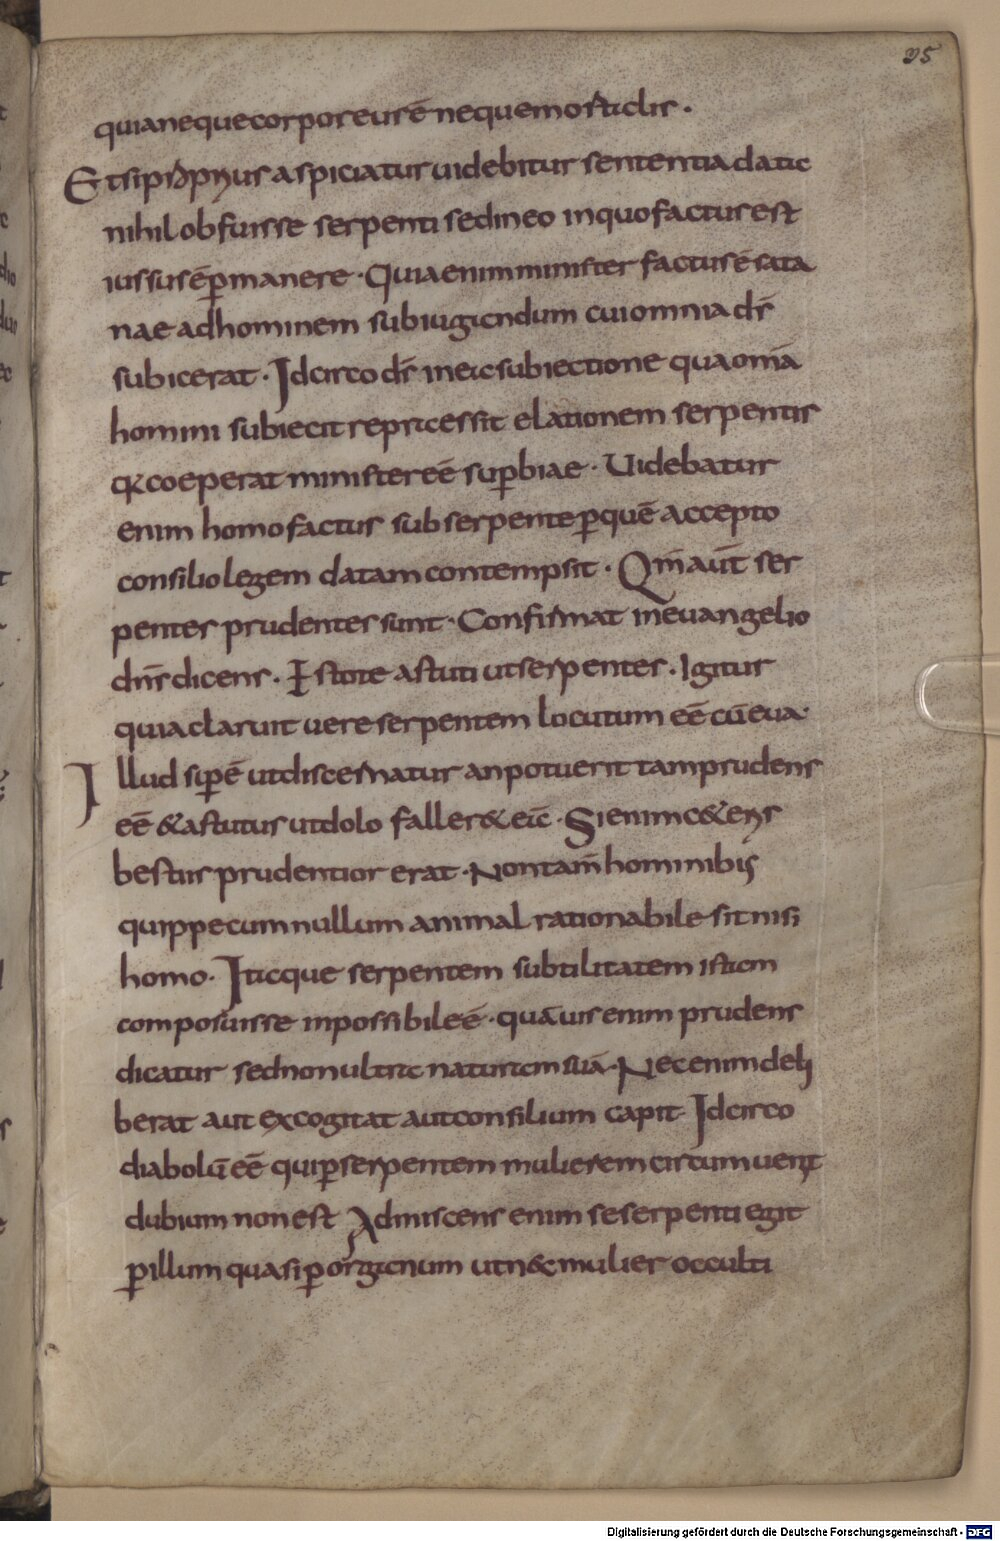 35
quia neque corporeus ē neque mortalis.
Et si pᷣpᷣius aspiciatur uidebitur sententia data
nihil obfuisse serpenti sed in eo in quo factus est
iussus ē ꝑmanere · Quia enim minister factus ē sata
nae ad hominem subiugandum cui omnia d̄s
subicerat · Idcirco d̄s in ea subiectione qua om̄ia
homini subiecit repressit elationem serpentis
qꝫ coeperat minister eē suꝑbiae · Uidebatur
enim homo factus sub serpente ꝑ quē accepto
consilio legem datam contempsit · Qm̄ aut̄ ser
pentes prudentes sunt · Confirmat in euangelio
dn̄s dicens · Estote astuti ut serpentes · Igitur
quia claruit uere serpentem locutum eē cū eua ·
Illud suꝑ ē ut discernatur an potuerit tam prudens
eē & astutus ut dolo faller& eā · Si enim c&eris
bestiis prudentior erat · Non tam̄ hominibꝫ
quippe cum nullum animal rationabile sit nisi
homo · Itaque serpentem subtilitatem istam
composuisse inpossibile ē · quāuis enim prudens
dicatur sed non ultra naturam suā · Nec enim deli
berat aut excogitat aut consilium capit · Idcirco
diabolū eē qui ꝑ serpentem mulierem circumuenit
dubium non est Admiscens enim se serpenti egit
ꝑ illum quasi ꝑ organum ut n& mulier occulti
Digitalisierung gefördert durch die Deutsche Forschungsgemeinschaft - DFG